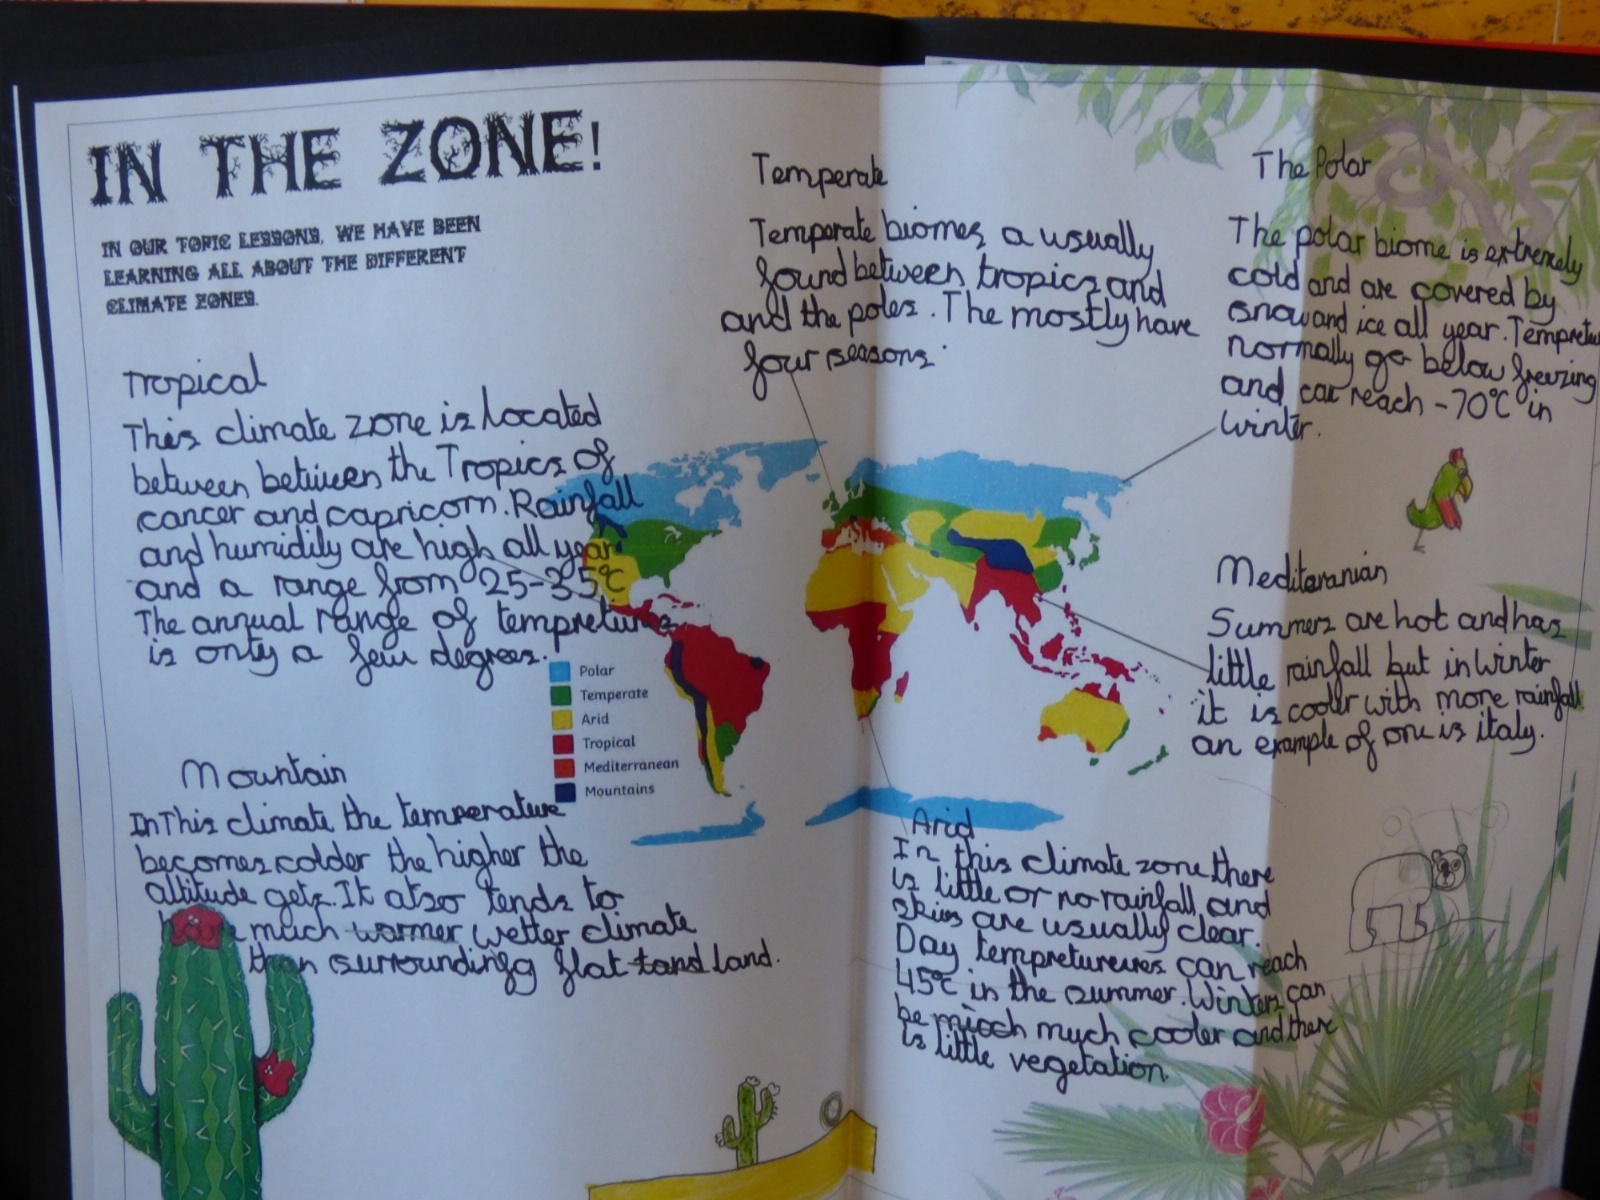 IN THE ZONE!
IN OUR TOPIC LESSONS, WE HAVE BEEN
LEARNING ALL ABOUT THE DIFFERENT
CLIMATE ZONES.
Tropical
This climate zone is located
between between the Tropics of
cancer and capricorn. Rainfall
and humidily are high all year
and a range from 25-35°C
The annual range of tempreture
is only a few degrees.
Mountain
In This climate the temperature
becomes colder the higher the
altitude gets. It also tends to
much warmer wetter climate
than surroundinfg flat tand land.
Temperate
Temperate biomes a usually
found between tropics and
and the poles. The mostly have
four seasons.
The Polar
The polar biome is extremely
cold and are covered by
snow and ice all year. Tempretu
normally go below freezing
and can reach -70°C in
winter.
Polar
Temperate
Arid
Tropical
Mediterranean
Mountains
Mediteranian
Summers are hot and has
little rainfall but in winter
it is cooler with more rainfall
an example of one is italy.
Arid
In this climate zone there
is little or no rainfall and
skies are usually clear.
Day can reach
45°C in the summer. Winters can
be much cooler and there
is little vegetation.